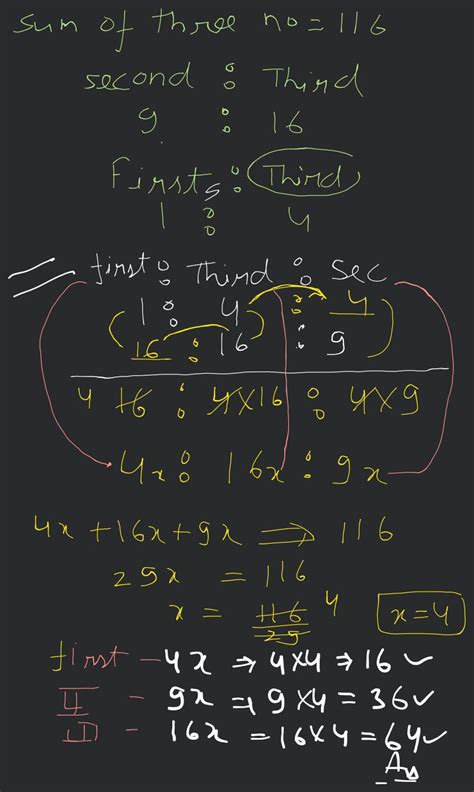 sum of three no = 116
second : Third
9 : 16
First : Third
1 : 4
first : Third : Sec
1 : 4 : 4
16 : 16 : 9
4 16 : 4x16 : 4x9
4x : 16x : 9x
4x + 16x + 9x ⇒ 116
29x = 116
x = 116/29 4 x = 4
first - 4x ⇒ 4x4 ⇒ 16 ✓
II - 9x = 9x4 = 36 ✓
III - 16x = 16x4 = 64 ✓
Ans